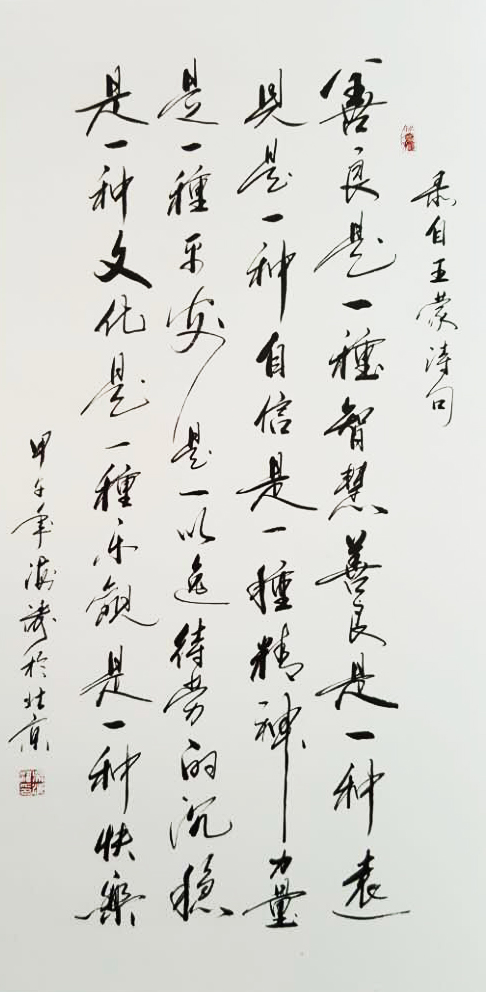 录自王蒙诗句
善良是一種智慧善良是一种远
見是一种自信是一種精神力量
是一種平安是一以逸待劳的沉稳
是一种文化是一種乐觀是一种快樂
甲午年海涛於北京